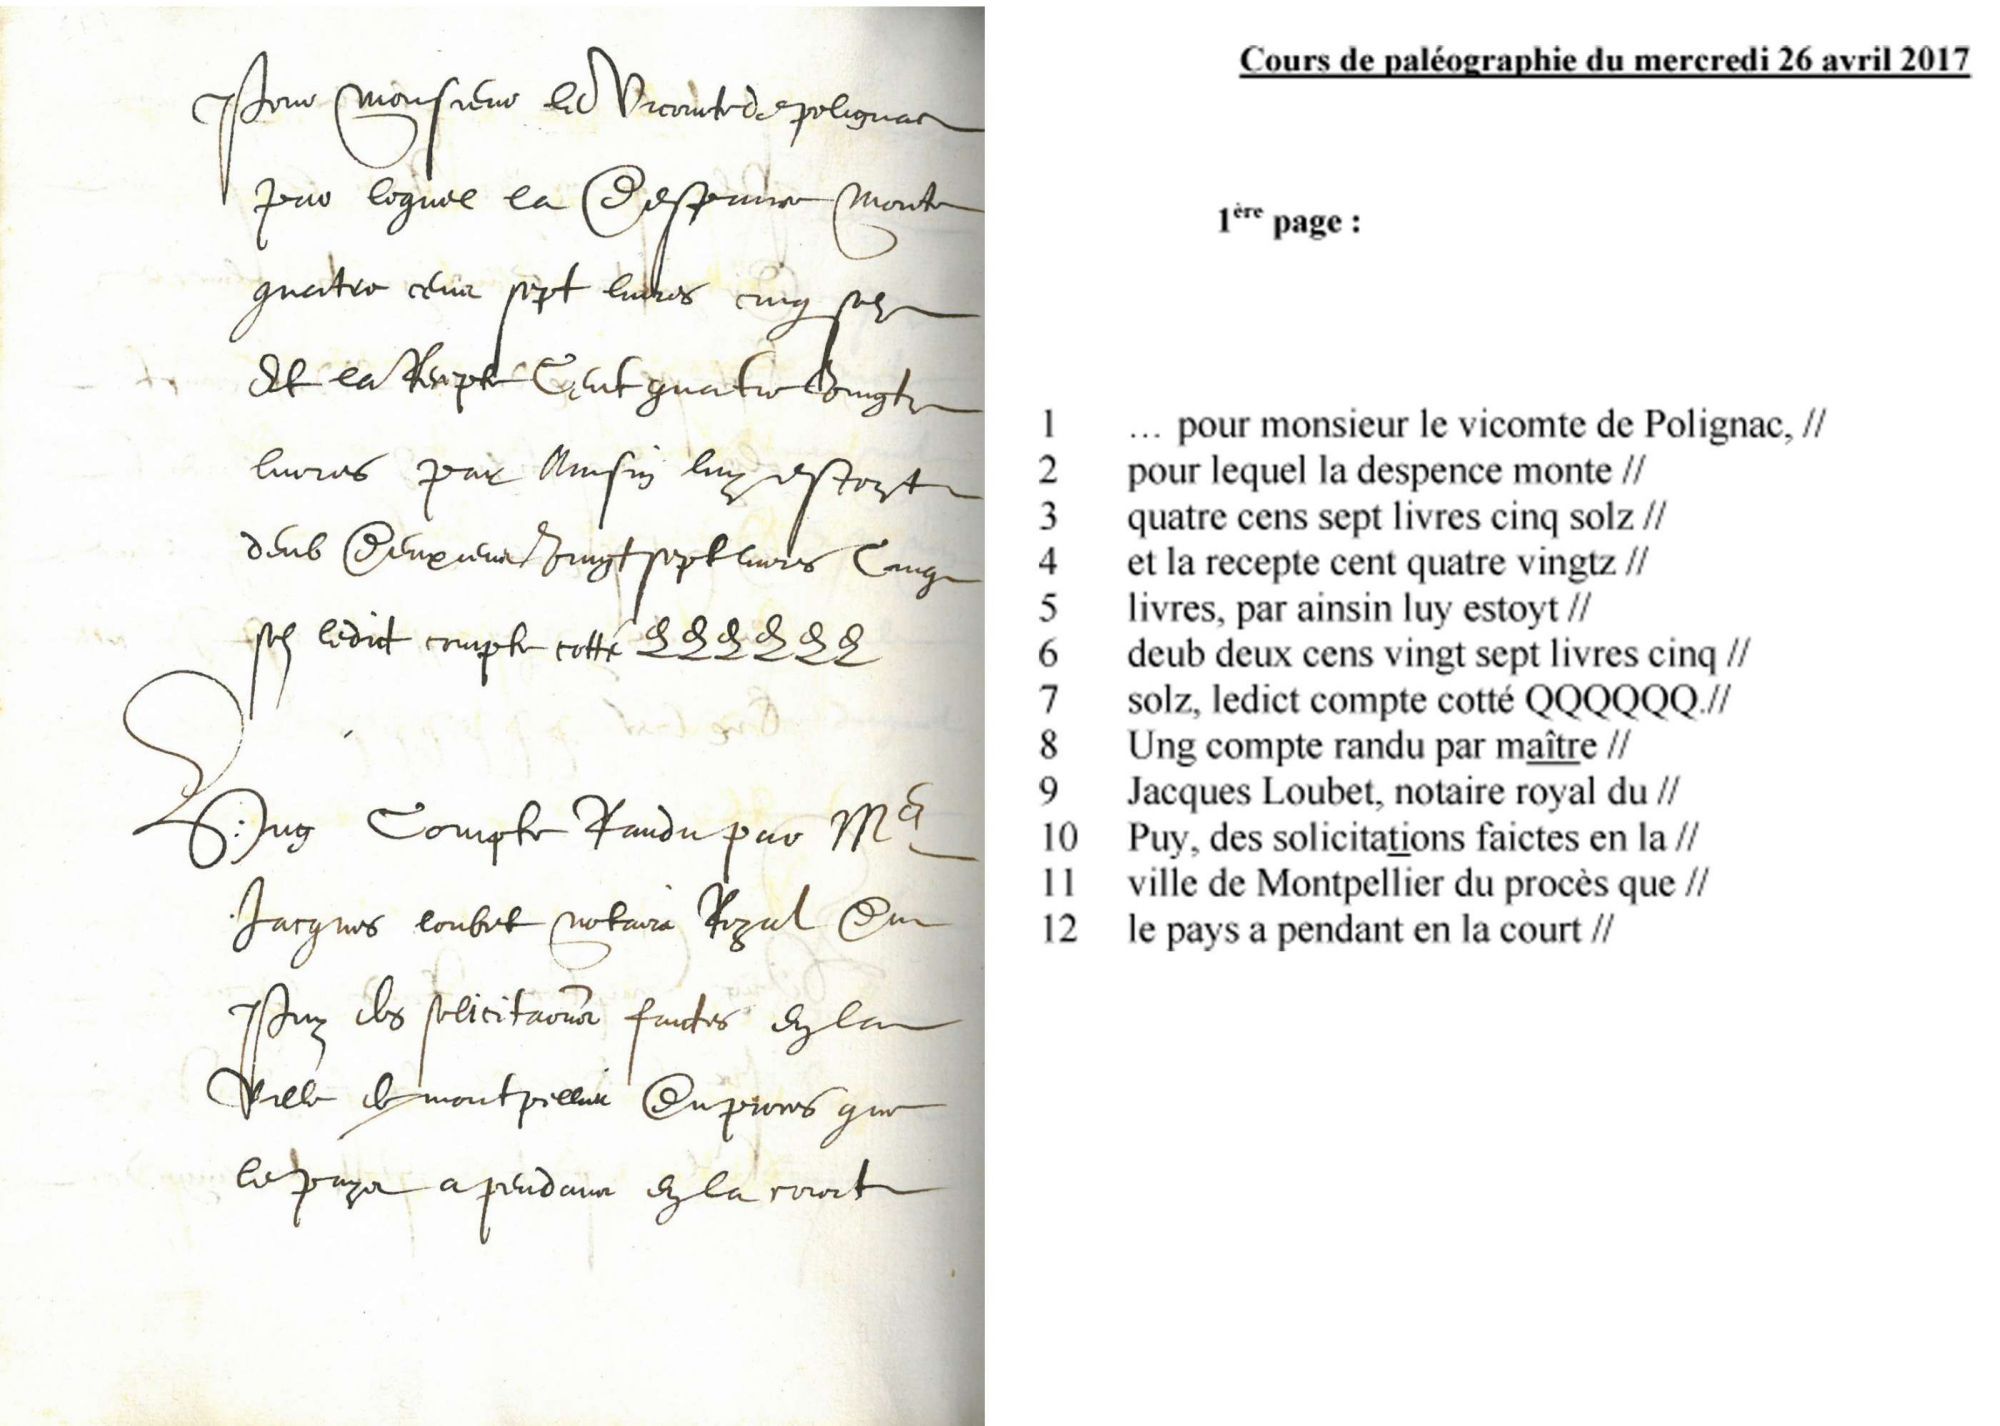 Pour monsieur le Vicomte de polignac
par lequel la despence monte
quatre cens sept livres cinq solz
Et la Recepte Cent quatre vingtz
livres par Ainsin luy estoyt
deub deux cens vingt sept livres Cinq
solz ledict compte cotté QQQQQQ
Ung Compte Randu par Me
Jacques loubet notaire Royal du
Puy des solicitaons faictes en la
ville de montpellier du proces que
le pays a pendant en la court
Cours de paléographie du mercredi 26 avril 2017
1ère page :
1 … pour monsieur le vicomte de Polignac, //
2 pour lequel la despence monte //
3 quatre cens sept livres cinq solz //
4 et la recepte cent quatre vingtz //
5 livres, par ainsin luy estoyt //
6 deub deux cens vingt sept livres cinq //
7 solz, ledict compte cotté QQQQQQ.//
8 Ung compte randu par maître //
9 Jacques Loubet, notaire royal du //
10 Puy, des solicitations faictes en la //
11 ville de Montpellier du procès que //
12 le pays a pendant en la court //